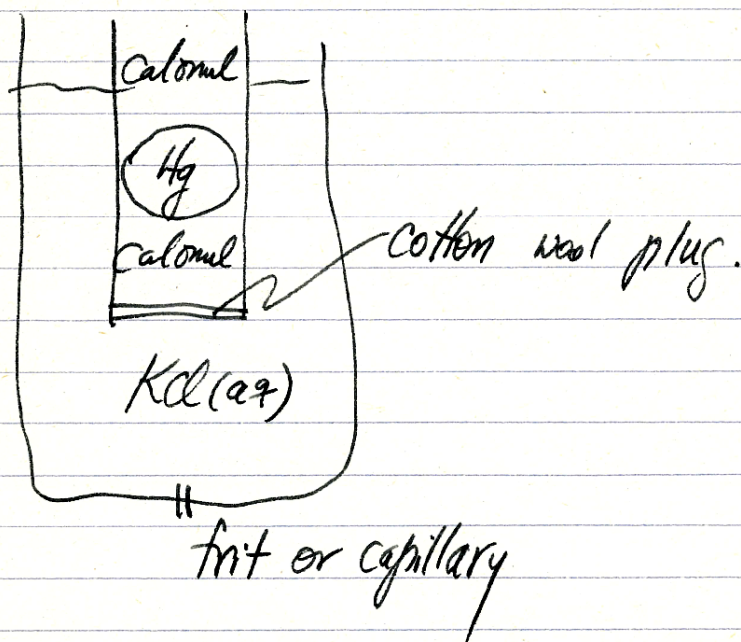 Calomel
Hg
Calomel
Cotton wool plug.
KCl(aq)
frit or capillary